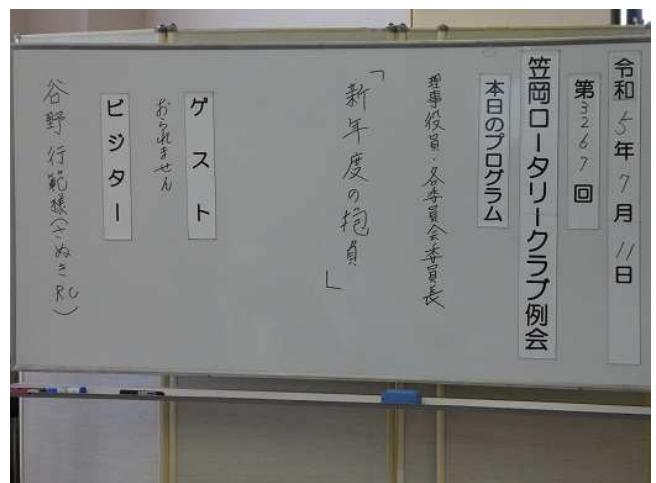 令和5年7月11日
第3267回
笠岡ロータリークラブ例会
本日のプログラム
理事役員・各委員会委員長
「新年度の抱負」
ゲスト
おられません
ビジター
谷野行範様(さぬきRC)